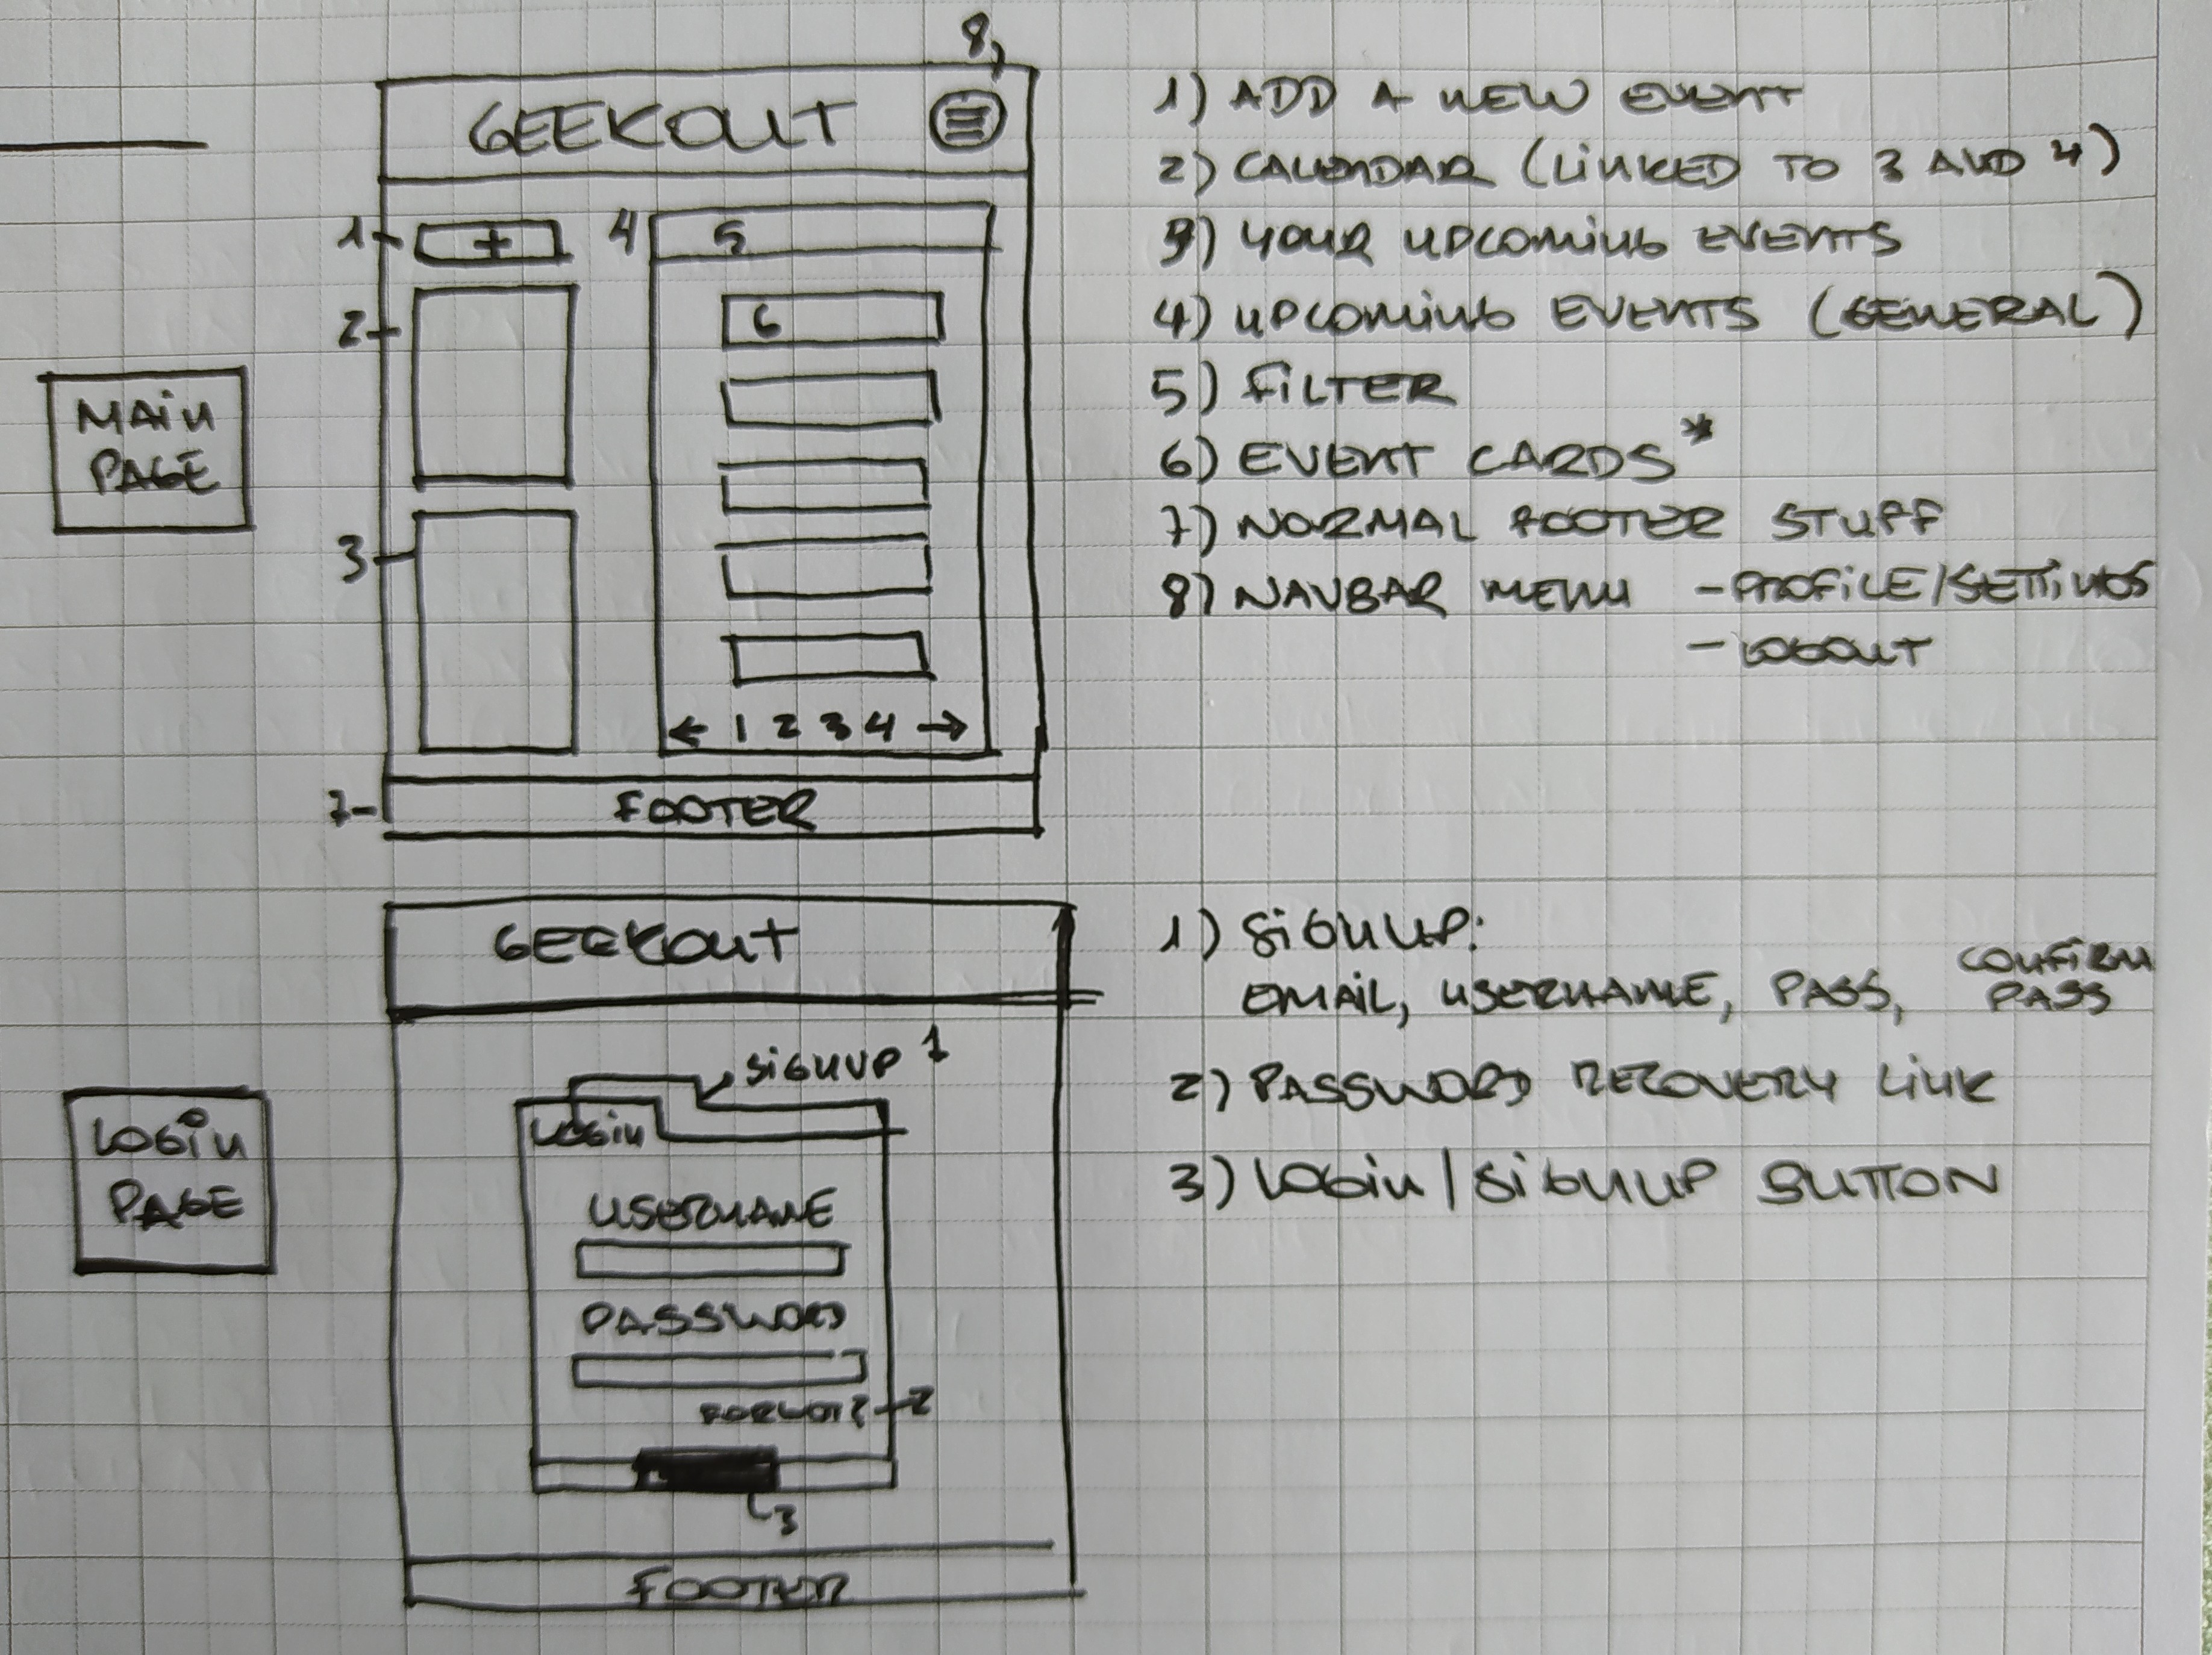 8)
GEEKOUT
1
+
4
5
2
6
3
← 1 2 3 4 →
7
FOOTER
MAIN
PAGE
1) ADD A NEW EVENT
2) CALENDAR (LINKED TO 3 AND 4)
3) YOUR UPCOMING EVENTS
4) UPCOMING EVENTS (GENERAL)
5) FILTER
6) EVENT CARDS*
7) NORMAL FOOTER STUFF
8) NAVBAR MENU - PROFILE/SETTINGS
- LOGOUT
GEEKOUT
SIGNUP 1
LOGIN
USERNAME
PASSWORD
FORGOT? 2
3
FOOTER
LOGIN
PAGE
1) SIGNUP:
EMAIL, USERNAME, PASS, CONFIRM
PASS
2) PASSWORD RECOVERY LINK
3) LOGIN / SIGNUP BUTTON